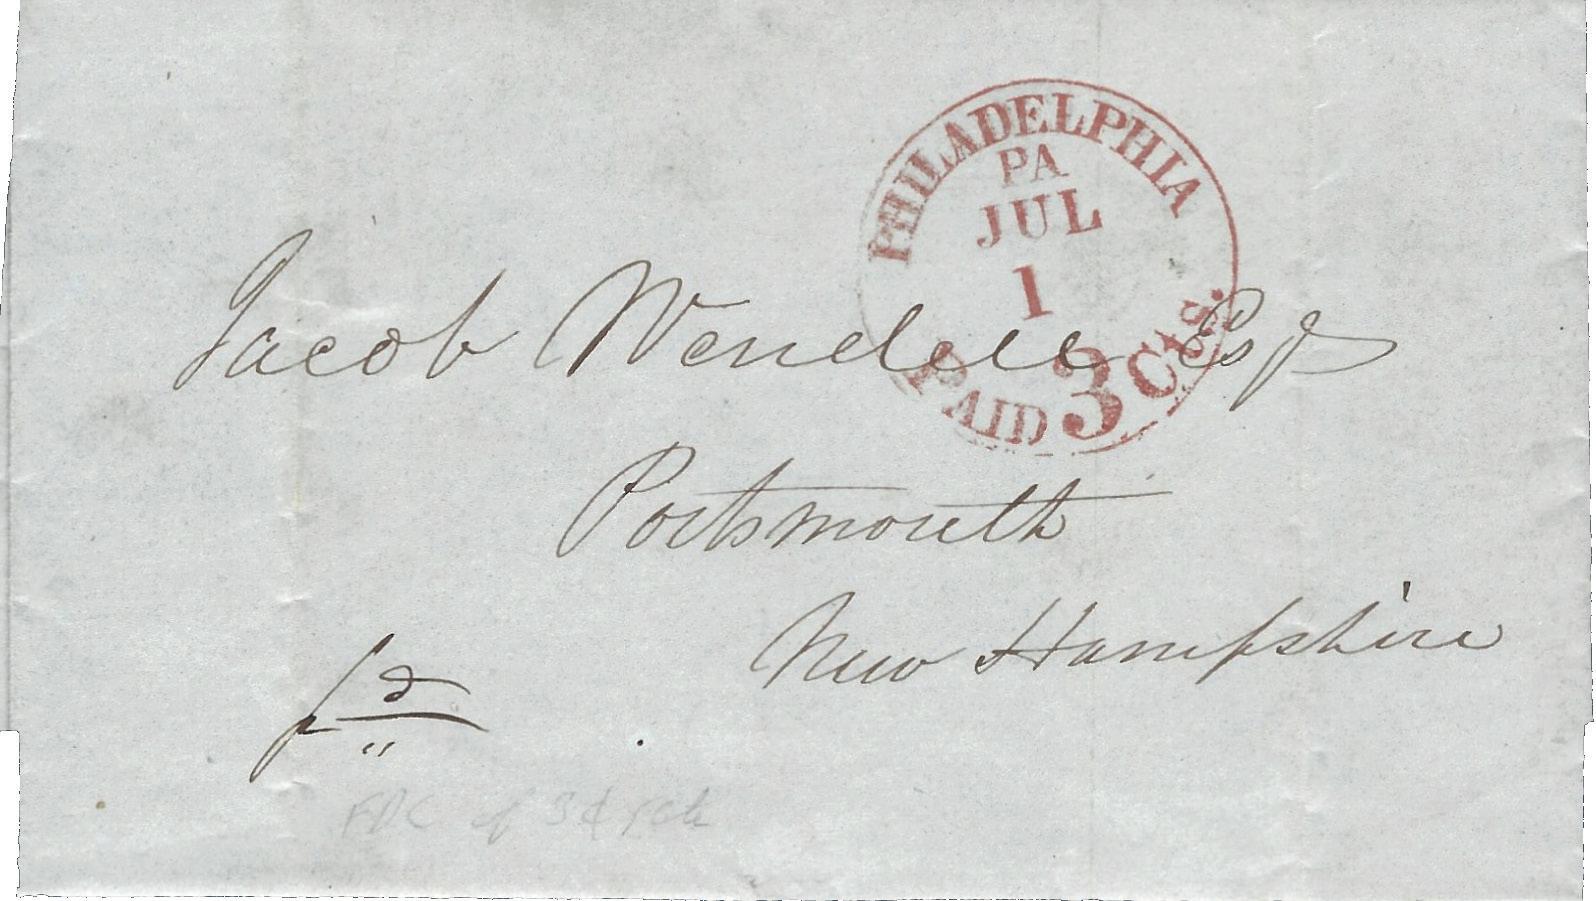 PHILADELPHIA
PA
JUL
1
PAID 3 Cts.
Jacob Wendell Esq
Portsmouth
New Hampshire
pd
FDC of 3¢